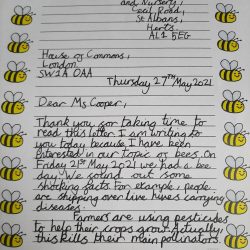 and Nursery,
Cecil Road,
St Albans,
Herts,
AL1 5EG
House of Commons,
London
SW1A 0AA
Thursday 27th May 2021
Dear Ms Cooper,
Thank you for taking time to
read this letter. I am writing to
you today because I have been
interested in our topic of bees. On
Friday 21st May 2021 we had a bee
day. We found out some
shocking facts. For example: people
are shipping over live hives carrying
diseases.
Farmers are using pesticides
to help their crops grow. Actually,
this kills their main pollinators.